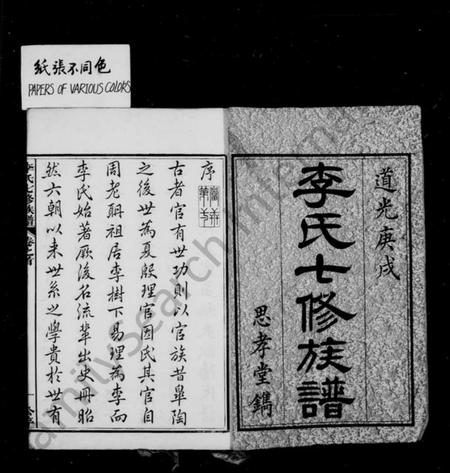 紙張不同色
PAPERS OF VARIOUS COLORS
道光庚戌
李氏七修族譜
思孝堂鐫
序
古者官有世功則以官族昔皋陶
之後世為夏殷理官因氏其官自
周老聃祖居李樹下易理為李而
李氏始著厥後名流輩出史冊昭
然六朝以来世系之學貴於世有
李氏七修族譜 卷之首